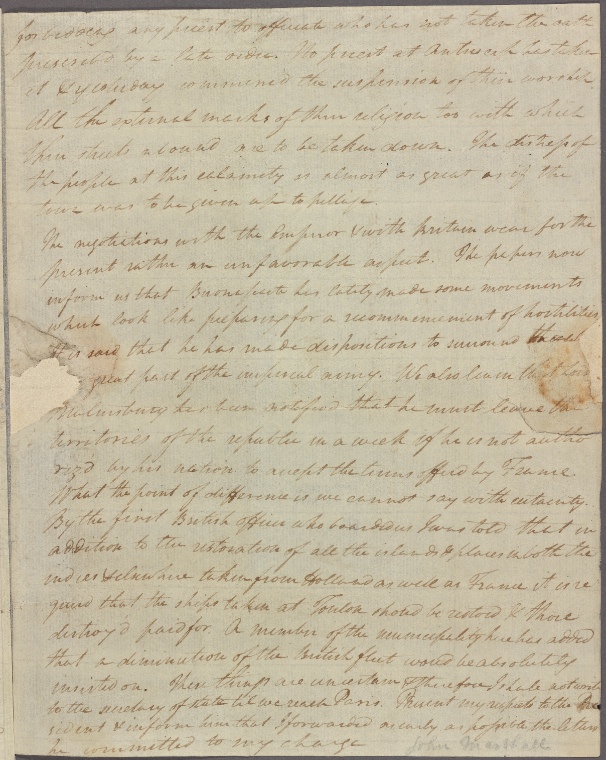 forbidding any priest to officiate who has not taken the oath
prescrib'd by a late order. No priest at Antwerp has taken
it & yesterday commenced the suspension of their worship.
All the external marks of their religion too with which
their streets abound are to be taken down. The distress of
the people at this calamity is almost as great as if the
town was to be given up to pillage.
The negotiations with the Emperor & with Britain wear for the
present rather an unfavorable aspect. The papers now
inform us that Buonaparte has lately made some movements
which look like preparing for a recommencement of hostilities
It is said that he has made dispositions to surround
great part of the imperial army. We also learn that Lord
Malmsbury has been notified that he must leave the
territories of the republic in a week if he is not autho
riz'd by his nation to accept the terms offerd by France
What the point of difference is we cannot say with certainty.
By the first British officer who boarded us I was told that in
addition to the restoration of all the islands & places in both the
indies & elsewhere taken from Holland as well as France it is re
quird that the ships taken at Toulon shoud be restord & those
destroy'd paid for. A member of the municipality here has added
that a diminution of the British fleet woud be absolutely
insisted on. These things are uncertain & therefore I shall not write
to the secretary of state til we reach Paris. Present my respects to the Pre
sident & inform him that I forwarded as early as possible the letters
he committed to my charge
John Marshall